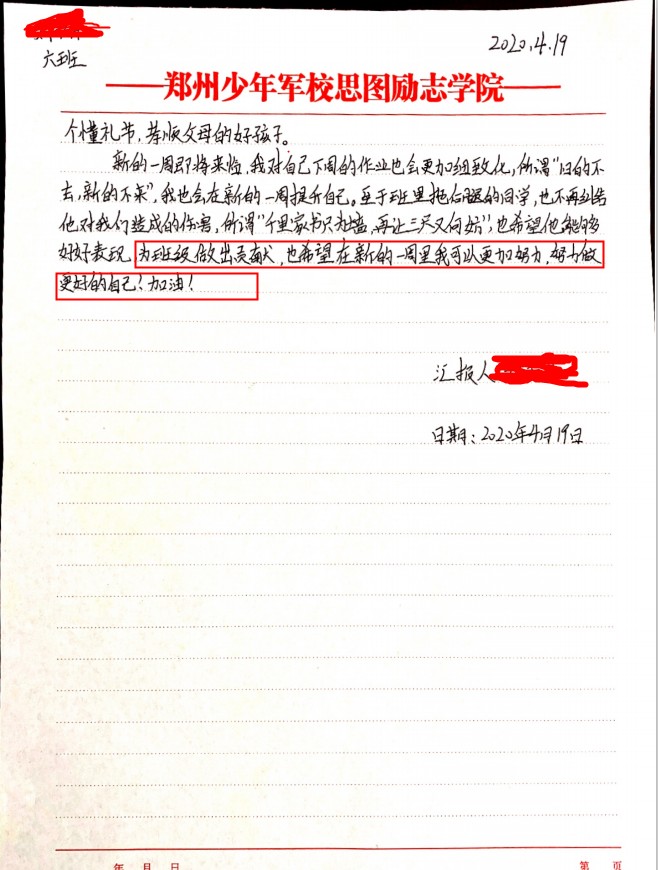 2020.4.19
六班
郑州少年军校思图励志学院
个懂礼节，孝顺父母的好孩子。
新的一周即将来临，我对自己下周的作业也会更加细致化，所谓“旧的不
去，新的不来”，我也会在新的一周提升自己。至于班里拖后腿的同学，也不再纠结
他对我们造成的伤害，所谓“千里家书只为墙，再让三尺又何妨”，也希望他能够
好好表现，为班级做出贡献，也希望在新的一周里我可以更加努力，努力做
更好的自己！加油！
汇报人
日期：2020年4月19日
年 月 日
第 页